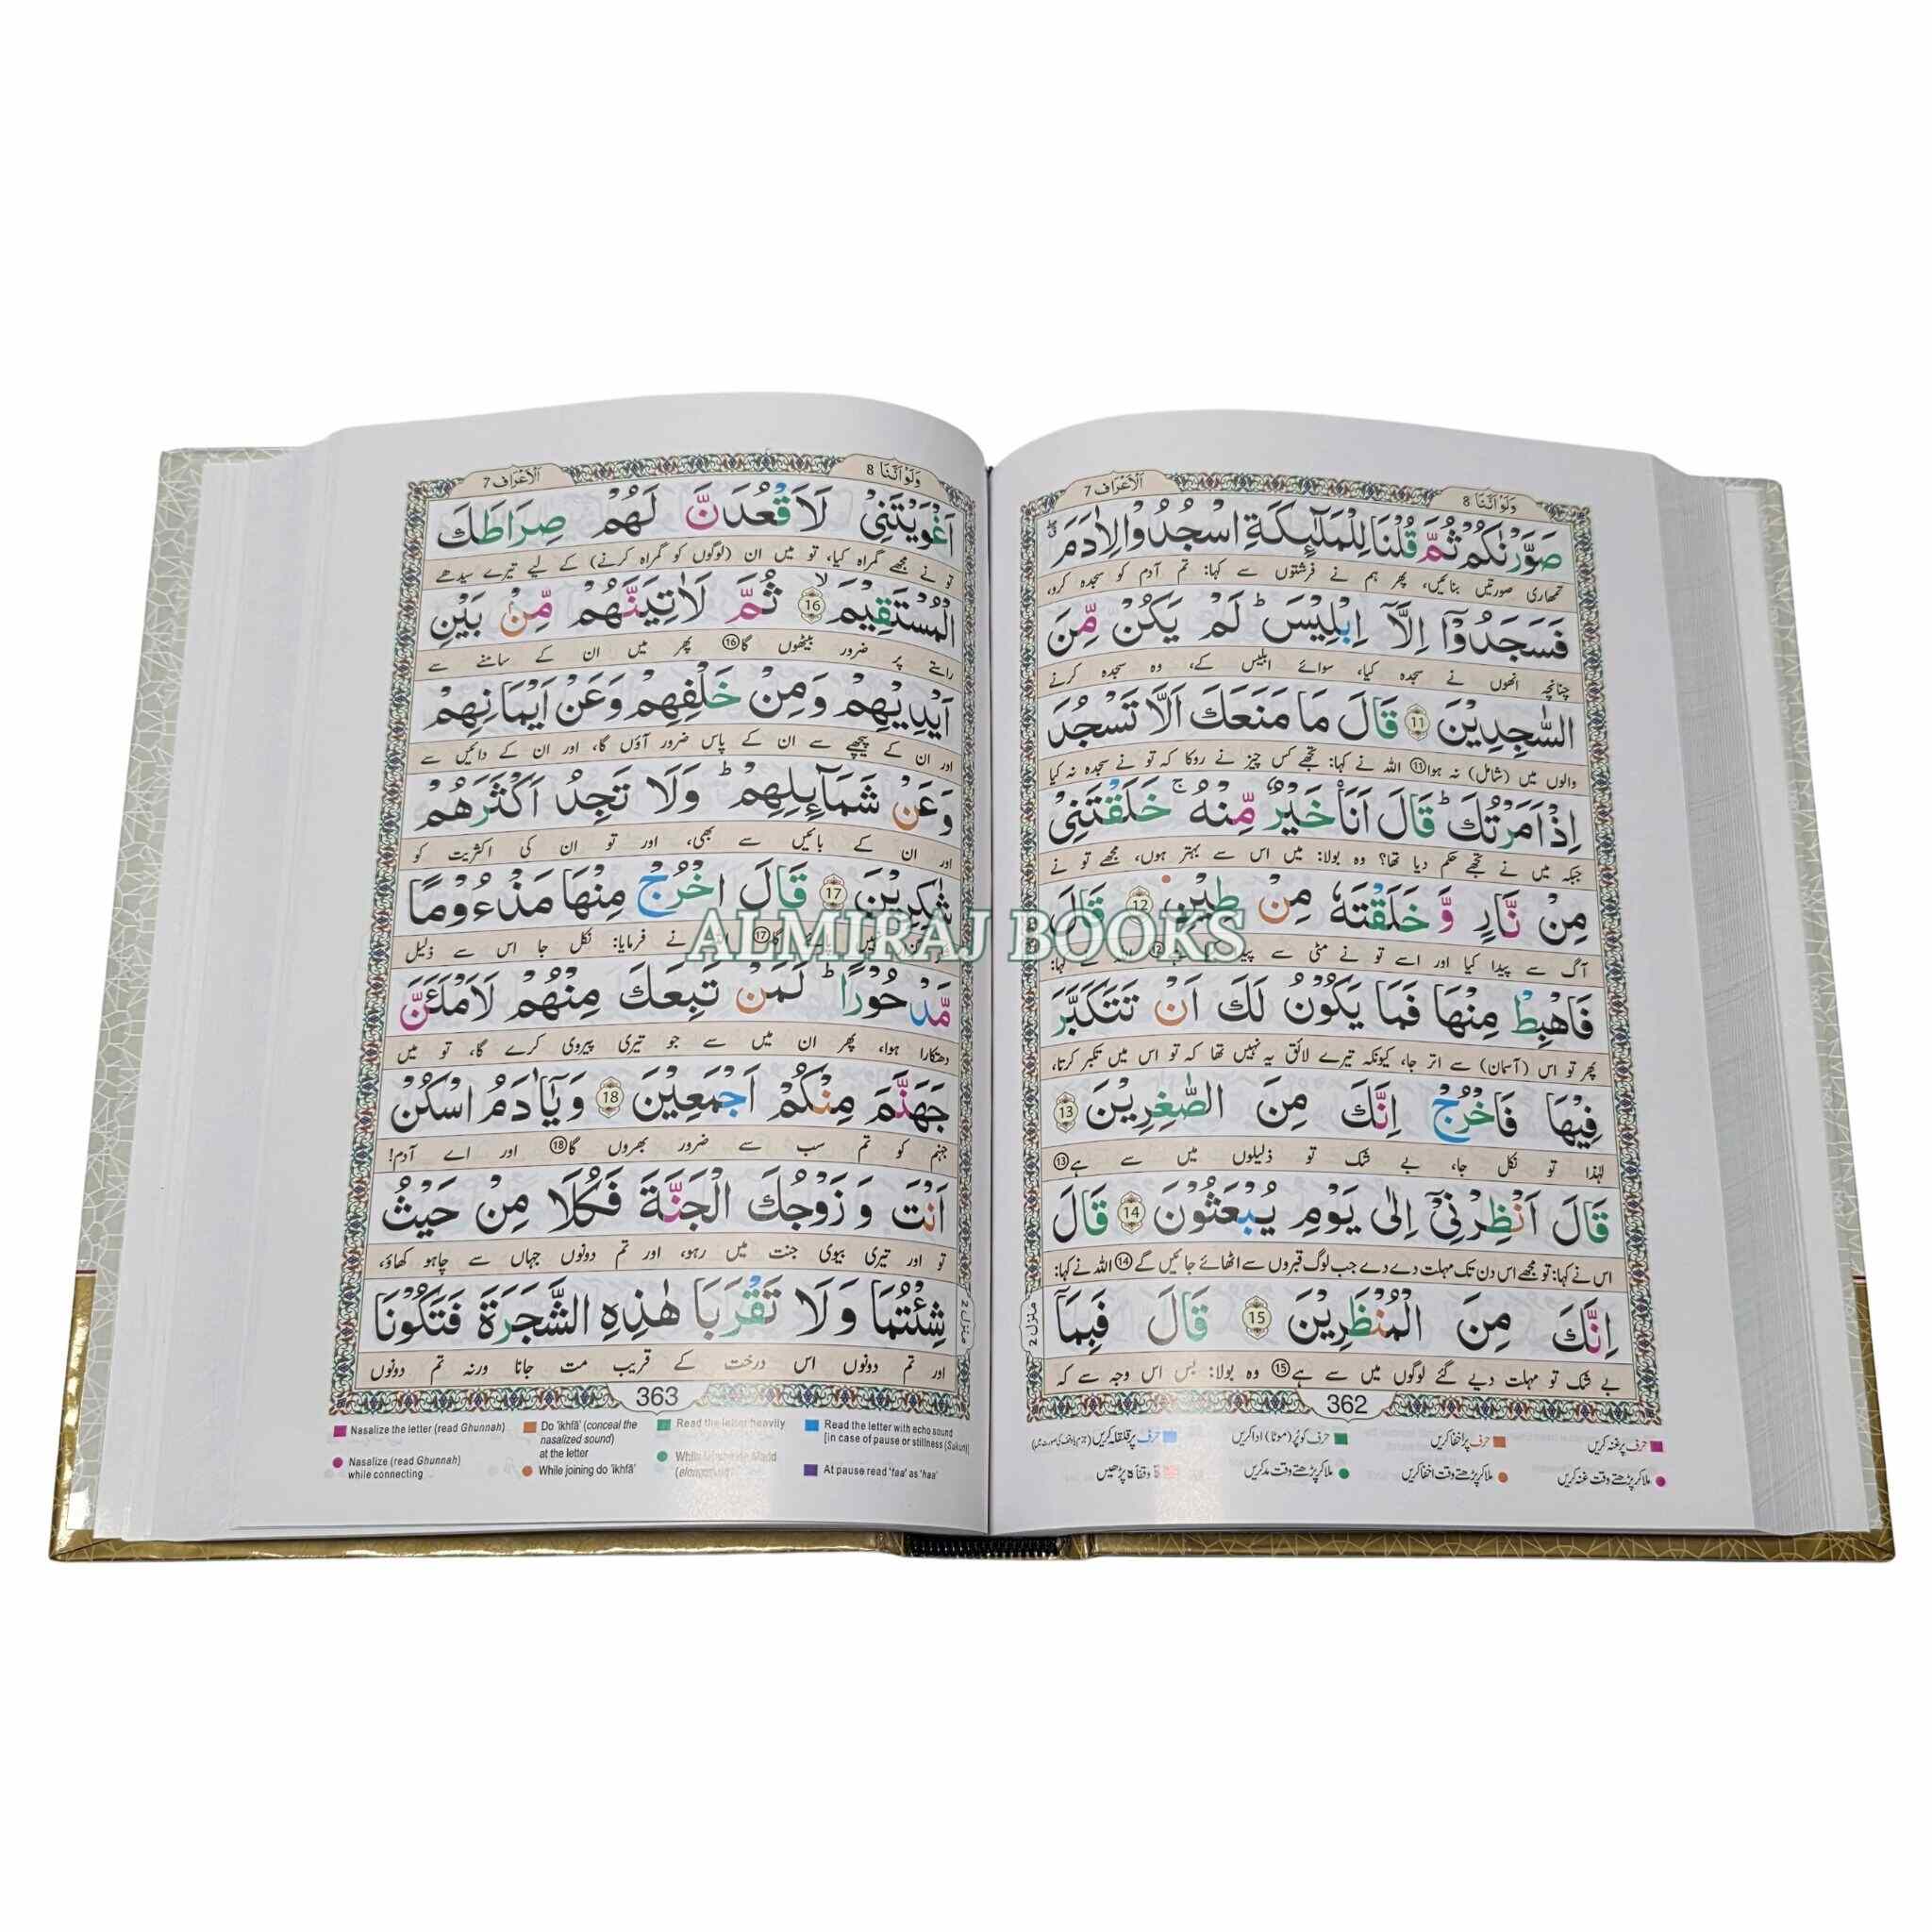 الاعراف 7
ولو اننا 8
صَوَّرْنٰكُمْ ثُمَّ قُلْنَا لِلْمَلٰٓئِكَةِ اسْجُدُوْا لِاٰدَمَ ۖ
تمھاری صورتیں بنائیں، پھر ہم نے فرشتوں سے کہا: تم آدم کو سجدہ کرو،
فَسَجَدُوْٓا اِلَّآ اِبْلِيْسَ ؕ لَمْ يَكُنْ مِّنَ
چنانچہ انھوں نے سجدہ کیا، سوائے ابلیس کے، وہ سجدہ کرنے
السّٰجِدِيْنَ 11 قَالَ مَا مَنَعَكَ اَلَّا تَسْجُدَ
والوں میں (شامل) نہ ہوا⑪ اللہ نے کہا: تجھے کس چیز نے روکا کہ تو نے سجدہ نہ کیا
اِذْ اَمَرْتُكَ ؕ قَالَ اَنَا خَيْرٌ مِّنْهُ ۚ خَلَقْتَنِيْ
جبکہ میں نے تجھے حکم دیا تھا؟ وہ بولا: میں اس سے بہتر ہوں، مجھے تو نے
مِنْ نَّارٍ وَّ خَلَقْتَهٗ مِنْ طِيْنٍ 12 قَالَ
آگ سے پیدا کیا اور اسے تو نے مٹی سے
فَاهْبِطْ مِنْهَا فَمَا يَكُوْنُ لَكَ اَنْ تَتَكَبَّرَ
پھر تو اس (آسمان) سے اتر جا، کیونکہ تیرے لائق یہ نہیں تھا کہ تو اس میں تکبر کرتا،
فِيْهَا فَاخْرُجْ اِنَّكَ مِنَ الصّٰغِرِيْنَ 13
لہٰذا تو نکل جا، بے شک تو ذلیلوں میں سے ہے⑬
قَالَ اَنْظِرْنِيْٓ اِلٰى يَوْمِ يُبْعَثُوْنَ 14 قَالَ
اس نے کہا: تو مجھے اس دن تک مہلت دے دے جب لوگ قبروں سے اٹھائے جائیں گے⑭ اللہ نے کہا:
اِنَّكَ مِنَ الْمُنْظَرِيْنَ 15 قَالَ فَبِمَآ
بے شک تو مہلت دیے گئے لوگوں میں سے ہے⑮ وہ بولا: بس اس وجہ سے کہ
منزل 2
362
حرف پر غنہ کریں
حرف پر اخفا کریں
حرف کو پُر (موٹا) ادا کریں
حرف پر قلقلہ کریں
ملا کر پڑھتے وقت غنہ کریں
ملا کر پڑھتے وقت اخفا کریں
ملا کر پڑھتے وقت مد کریں
الاعراف 7
ولو اننا 8
اَغْوَيْتَنِيْ لَاَقْعُدَنَّ لَهُمْ صِرَاطَكَ
تو نے مجھے گمراہ کیا، تو میں ان (لوگوں کو گمراہ کرنے) کے لیے تیرے سیدھے
الْمُسْتَقِيْمَ ۙ 16 ثُمَّ لَاٰتِيَنَّهُمْ مِّنْ بَيْنِ
راستے پر ضرور بیٹھوں گا⑯ پھر میں ان کے سامنے سے
اَيْدِيْهِمْ وَمِنْ خَلْفِهِمْ وَعَنْ اَيْمَانِهِمْ
اور ان کے پیچھے سے ان کے پاس ضرور آؤں گا، اور ان کے دائیں سے
وَعَنْ شَمَآئِلِهِمْ ؕ وَلَا تَجِدُ اَكْثَرَهُمْ
اور ان کے بائیں سے بھی، اور تو ان کی اکثریت کو
شٰكِرِيْنَ 17 قَالَ اخْرُجْ مِنْهَا مَذْءُوْمًا
نے فرمایا: نکل جا اس سے ذلیل
مَّدْحُوْرًا ؕ لَمَنْ تَبِعَكَ مِنْهُمْ لَاَمْلَئَنَّ
دھتکارا ہوا، پھر ان میں سے جو تیری پیروی کرے گا، تو میں
جَهَنَّمَ مِنْكُمْ اَجْمَعِيْنَ 18 وَيٰٓاٰدَمُ اسْكُنْ
جہنم کو تم سب سے ضرور بھروں گا⑱ اور اے آدم!
اَنْتَ وَ زَوْجُكَ الْجَنَّةَ فَكُلَا مِنْ حَيْثُ
تو اور تیری بیوی جنت میں رہو، اور تم دونوں جہاں سے چاہو کھاؤ،
شِئْتُمَا وَلَا تَقْرَبَا هٰذِهِ الشَّجَرَةَ فَتَكُوْنَا
اور تم دونوں اس درخت کے قریب مت جانا ورنہ تم دونوں
منزل 2
363
Nasalize the letter (read Ghunnah)
Do 'ikhfā' (conceal the nasalized sound) at the letter
Read the letter heavily
Read the letter with echo sound [in case of pause or stillness (Sukun)]
Nasalize (read Ghunnah) while connecting
While joining do 'ikhfā'
At pause read 'taa' as 'haa'
ALMIRAJ BOOKS